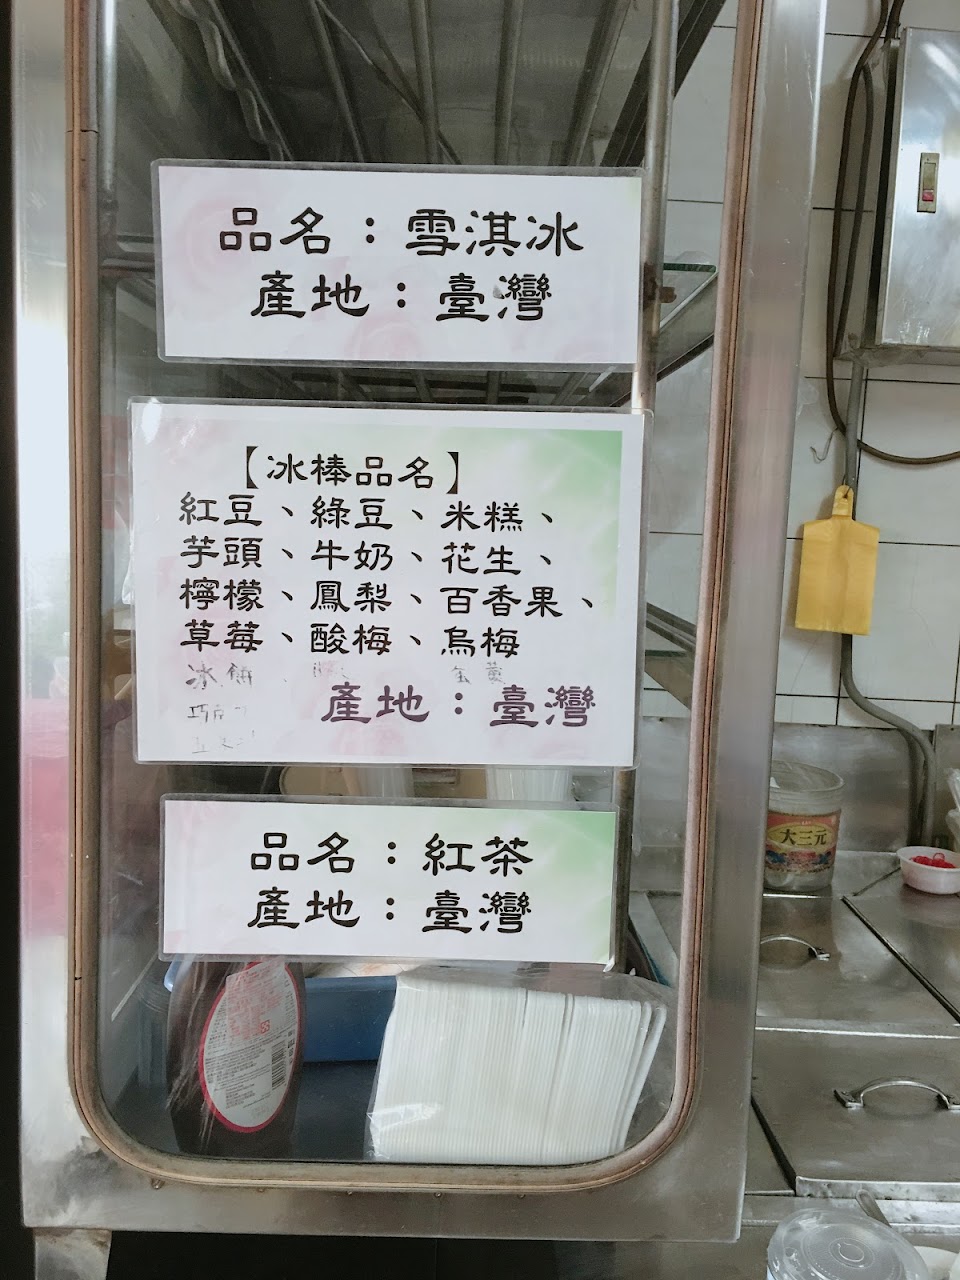 品名：雪淇冰
產地：臺灣
【冰棒品名】
紅豆、綠豆、米糕、
芋頭、牛奶、花生、
檸檬、鳳梨、百香果、
草莓、酸梅、烏梅
冰餅
產地：臺灣
品名：紅茶
產地：臺灣
大三元